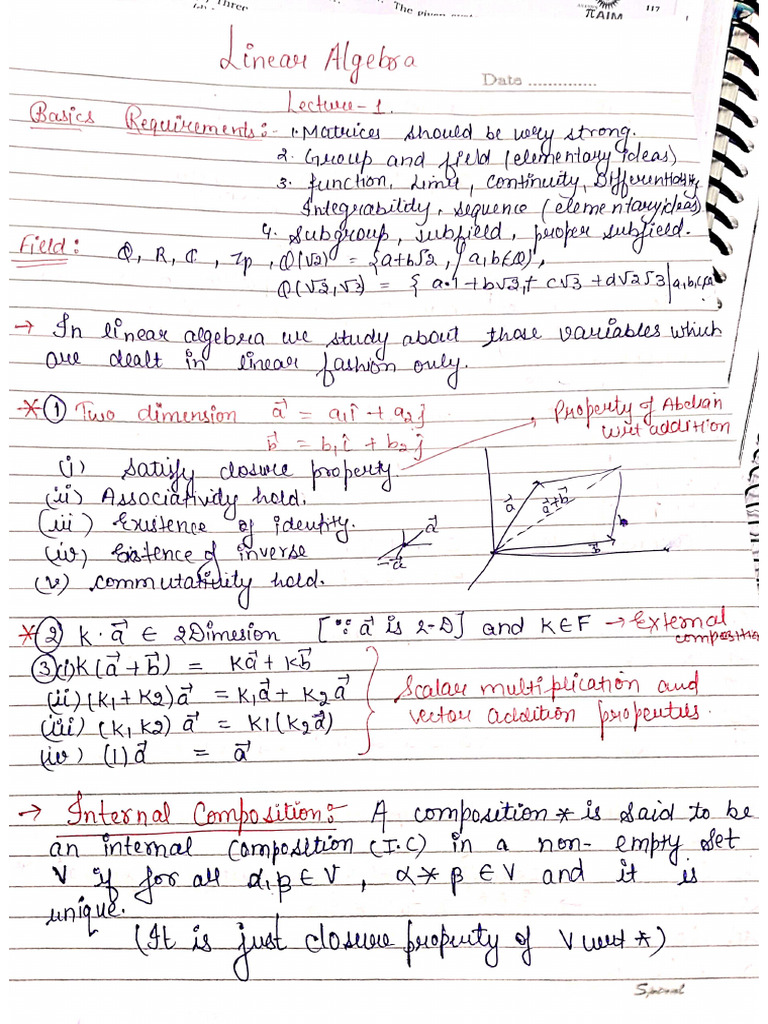 Three
The given
πAIM
117
Linear Algebra
Date ..............
Lecture-1.
Basics Requirements:- 1. Matrices should be very strong.
2. Group and field (elementary ideas)
3. function, Limit, continuity, Differentiability
Integrability, sequence (elementary ideas)
4. Subgroup, subfield, proper subfield.
Field: Q, R, C, Zp, Q(√2) = {a+b√2, / a,b∈Q},
Q(√2,√3) = { a.1+b√3,+ c√3 + d√2√3|a,b,c,
→ In linear algebra we study about those variables which
are dealt in linear fashion only.
* ① Two dimension a⃗ = a₁î + a₂ĵ
b⃗ = b₁î + b₂ĵ
→ Property of Abelian
wrt addition
(i) Satisfy closure property.
(ii) Associativity hold.
(iii) Existence of identity.
(iv) Existence of inverse
(v) commutativity hold.
a⃗
-a⃗
a⃗
a⃗+b⃗
b
b⃗
* ② K·a⃗ ∈ 2Dimesion [∵ a⃗ is 2-D] and K∈F → External
compositio
③(i) K(a⃗+b⃗) = Ka⃗ + Kb⃗
(ii) (K₁+K2)a⃗ = K₁a⃗ + K₂a⃗
(iii) (K₁K₂) a⃗ = K₁(K₂a⃗)
(iv) (1)a⃗ = a⃗
Scalar multiplication and
vector addition properties.
→ Internal Composition:- A composition * is said to be
an internal composition (I.C) in a non-empty set
V if for all α,β ∈ V, α * β ∈ V and it is
unique.
(It is just closure property of V wrt *)
Spiral